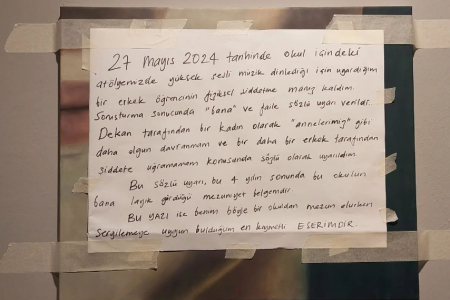 27 Mayıs 2024 tarihinde okul içindeki
atölyemizde yüksek sesli müzik dinlediği için uyardığım
bir erkek öğrencinin fiziksel şiddetine maruz kaldım.
Soruşturma sonucunda "bana" ve faile sözlü uyarı verildi.
Dekan tarafından bir kadın olarak "annelerimiz" gibi
daha olgun davranmam ve bir daha bir erkek tarafından
şiddete uğramamam konusunda sözlü olarak uyarıldım.
Bu sözlü uyarı, bu 4 yılın sonunda bu okulun
bana layık gördüğü mezuniyet belgemdir.
Bu yazı ise benim böyle bir okuldan mezun olurken
sergilemeye uygun bulduğum en kıymetli ESERİMDİR.